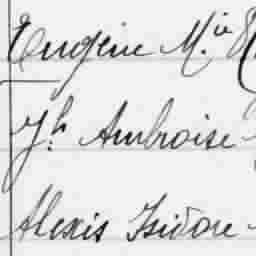 Eugène M.ie
Jh. Ambroise
Alexis Isidore